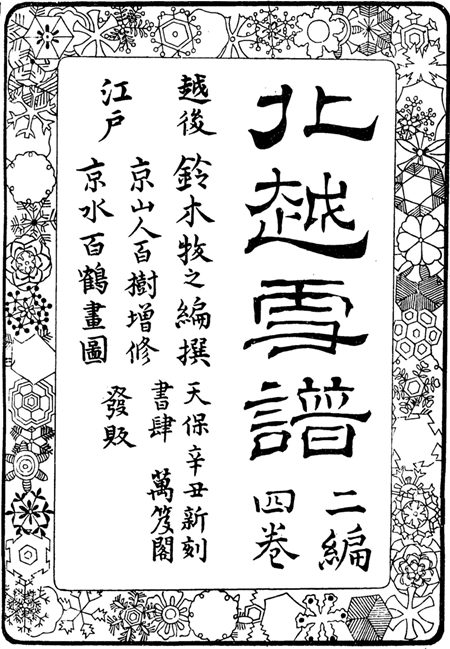 北越雪譜
二編
四巻
越後 鈴木牧之編撰
江戸 京山人百樹増修
京水百鶴畫圖
天保辛丑新刻
書肆 萬笈閣
發販